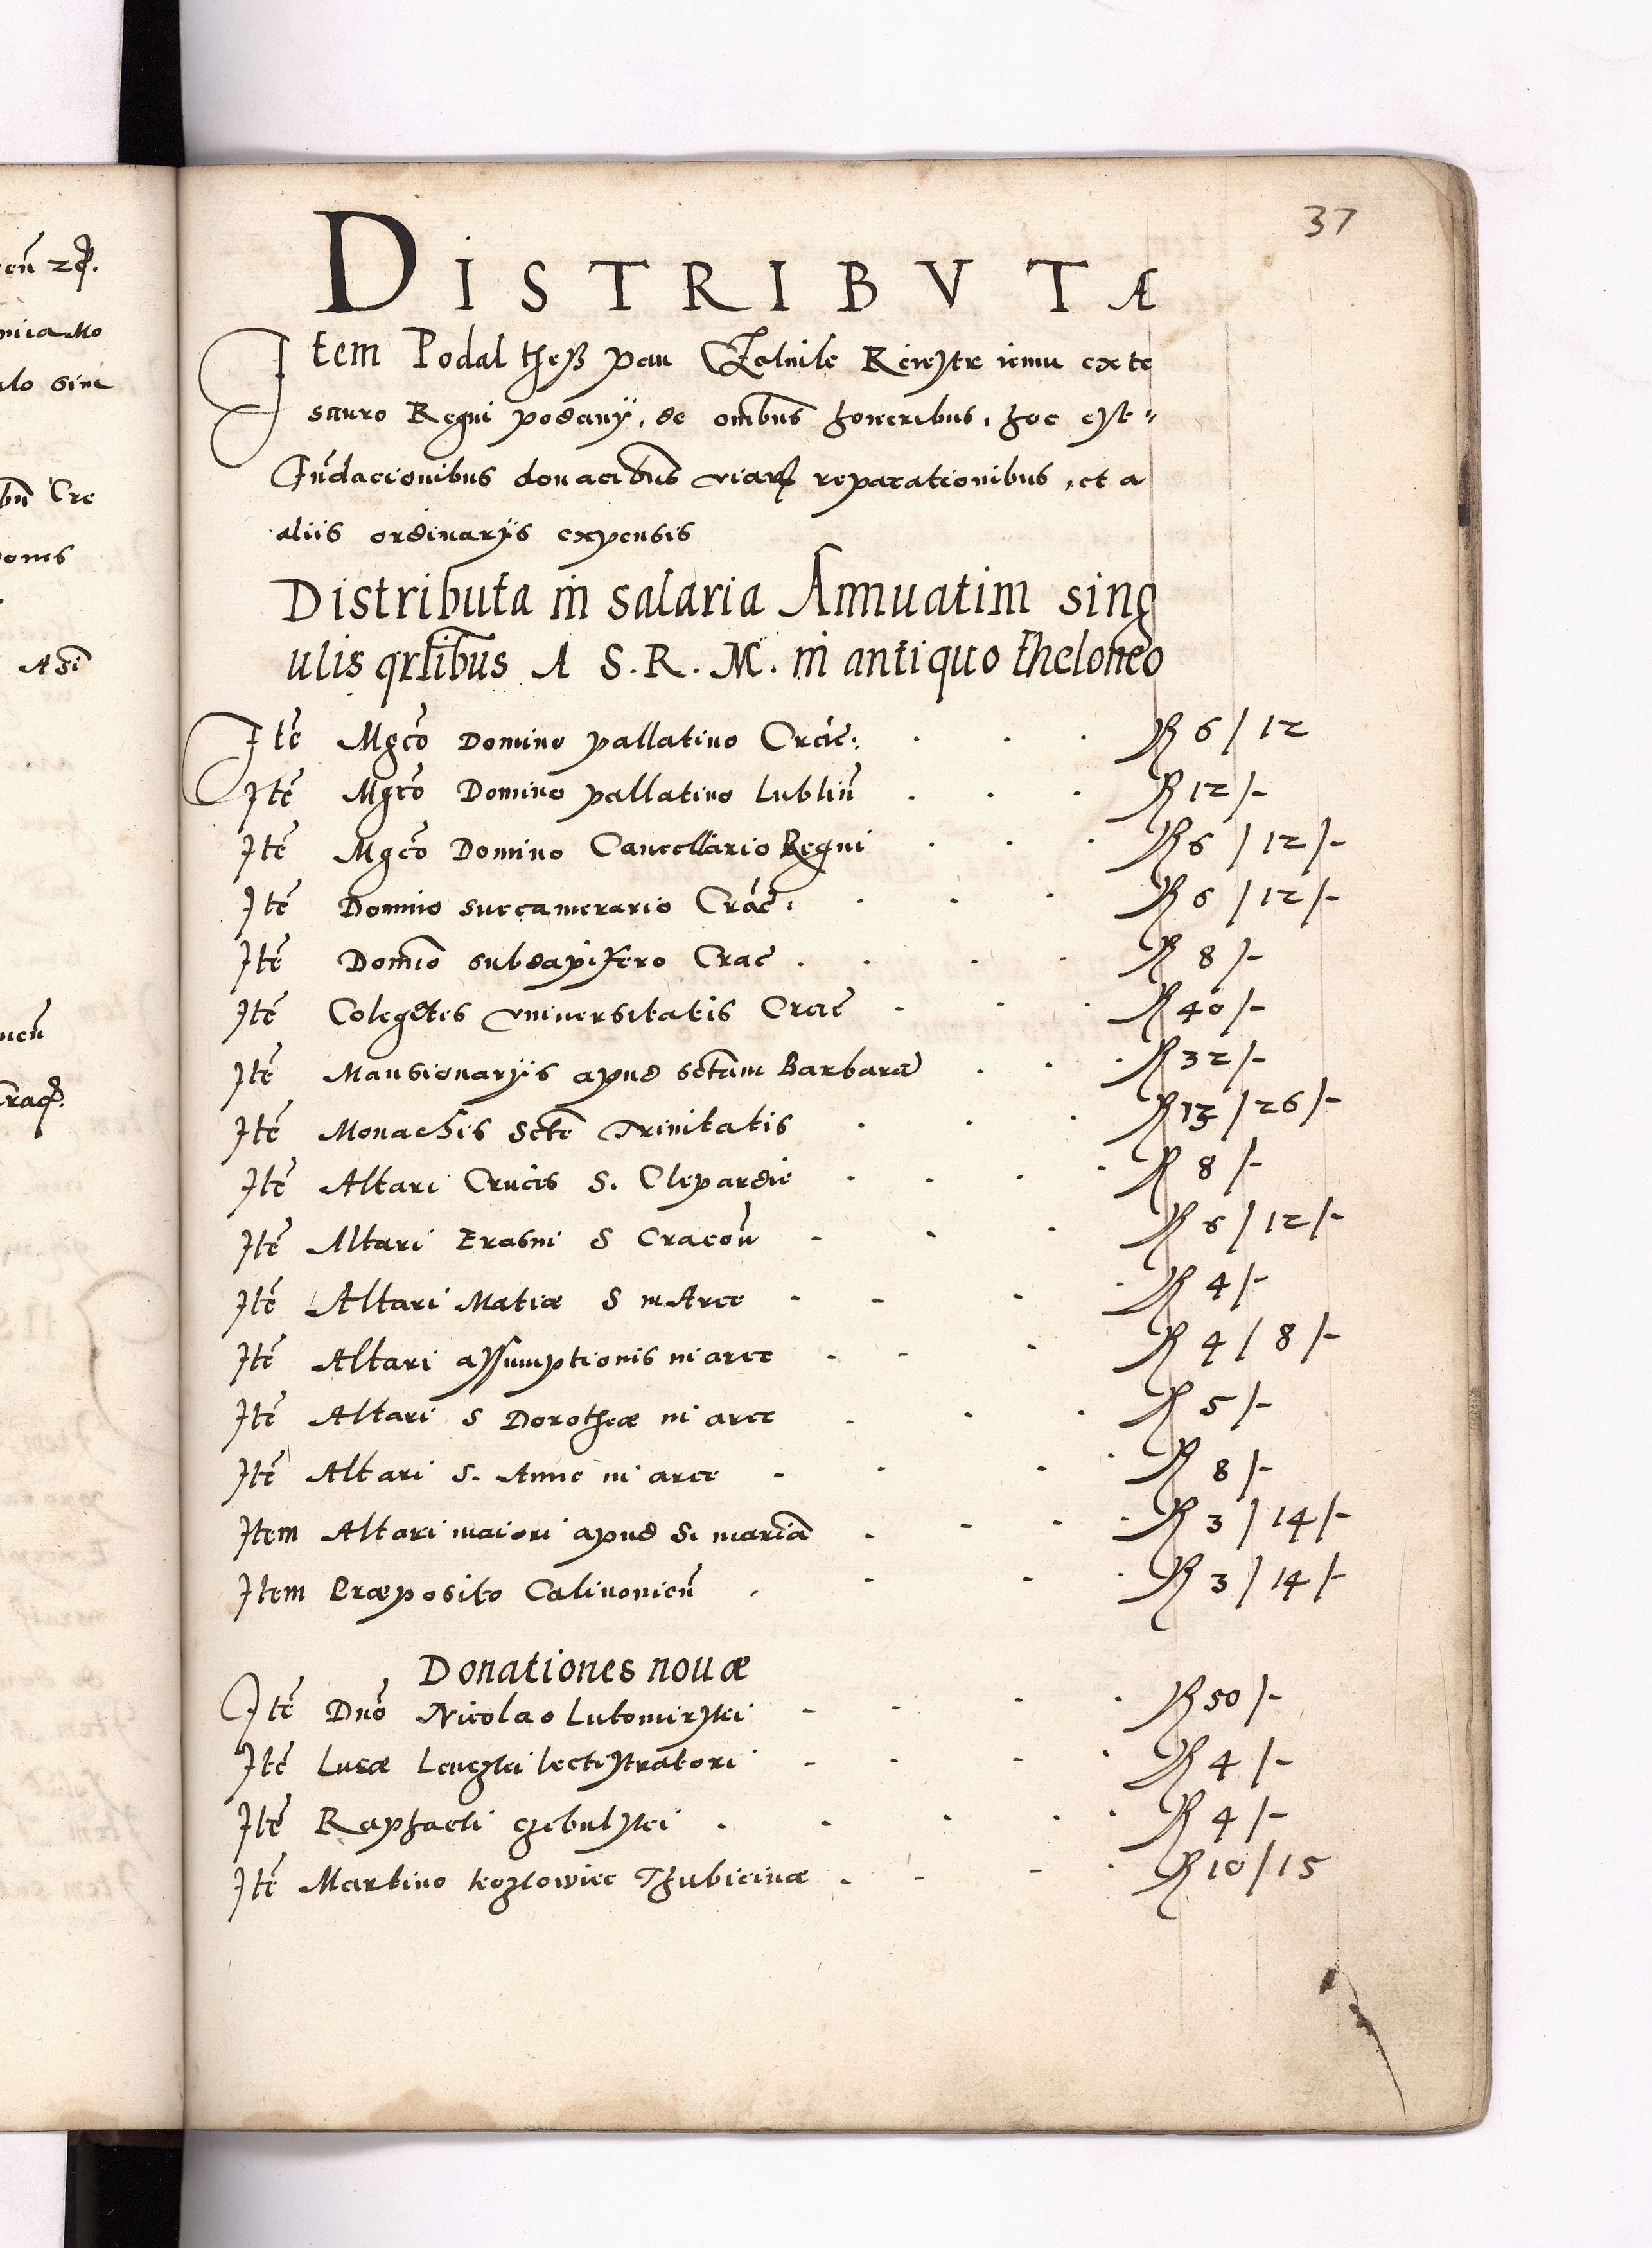 37
DISTRIBVTA
Item Podal thesz pan Czelnik Reiestr iemu ex te
sauro Regni podany, de omībus honeribus, hoc est
fūdacionibus donacībus viarum reparationibus, et a
aliis ordinarijs expensis
Distributa in salaria Annuatim sing
ulis qrtībus A S. R. M. in antiquo theloneo
Itē Mgcō Domino pallatino Crac: ꝶ 6/12
Itē Mgcō Domino pallatino Lubliñ ꝶ 12/-
Itē Mgcō Domino Cancellario Regni ꝶ 6/12/-
Itē Domino succamerario Crac: ꝶ 6/12/-
Itē Domīo subdapifero Crac ꝶ 8/-
Itē Colegetis vniversitatis Crac ꝶ 40/-
Itē Mansionarijs apud sctam Barbarā ꝶ 32/-
Itē Monachis Scte Trinitatis ꝶ 13/26/-
Itē Altari Crucis S. Clepardie ꝶ 8/-
Itē Altari Erasmi S Cracoñ ꝶ 6/12/-
Itē Altari Matiæ S in Arce ꝶ 4/-
Itē Altari assumptionis in arce ꝶ 4/8/-
Itē Altari S Dorotheæ in arce ꝶ 5/-
Itē Altari S. Anne in arce ꝶ 8/-
Item Altari maiori apud S. mariā ꝶ 3/14/-
Item Præposito Calinonieñ ꝶ 3/14/-
Donationes nouæ
Itē Dnō Nicolao Lutomirstei ꝶ 50/-
Itē Lucæ Lenczkei lectistratori ꝶ 4/-
Itē Raphaeli czebulskei ꝶ 4/-
Itē Martino kozlowiec Thubicinæ ꝶ 10/15